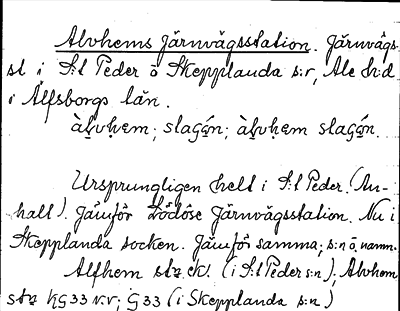 Alvhems Järnvägsstation. Järnvägs-
st i S:t Peder o Skepplanda s:r, Ale h:d
i Älfsborgs län.
àlvhem; slagǻn; àlvhem slagǻn.
Ursprungligen helt i S:t Peder. (An-
hall). Jämför Lödöse Järnvägsstation. Nu i
Skepplanda socken. Jämför samma, s:n o namn.
Alfhem st. ek. (i S:t Peder s:n); Alvhem
stn KG33 N.V; G33 (i Skepplanda s:n)